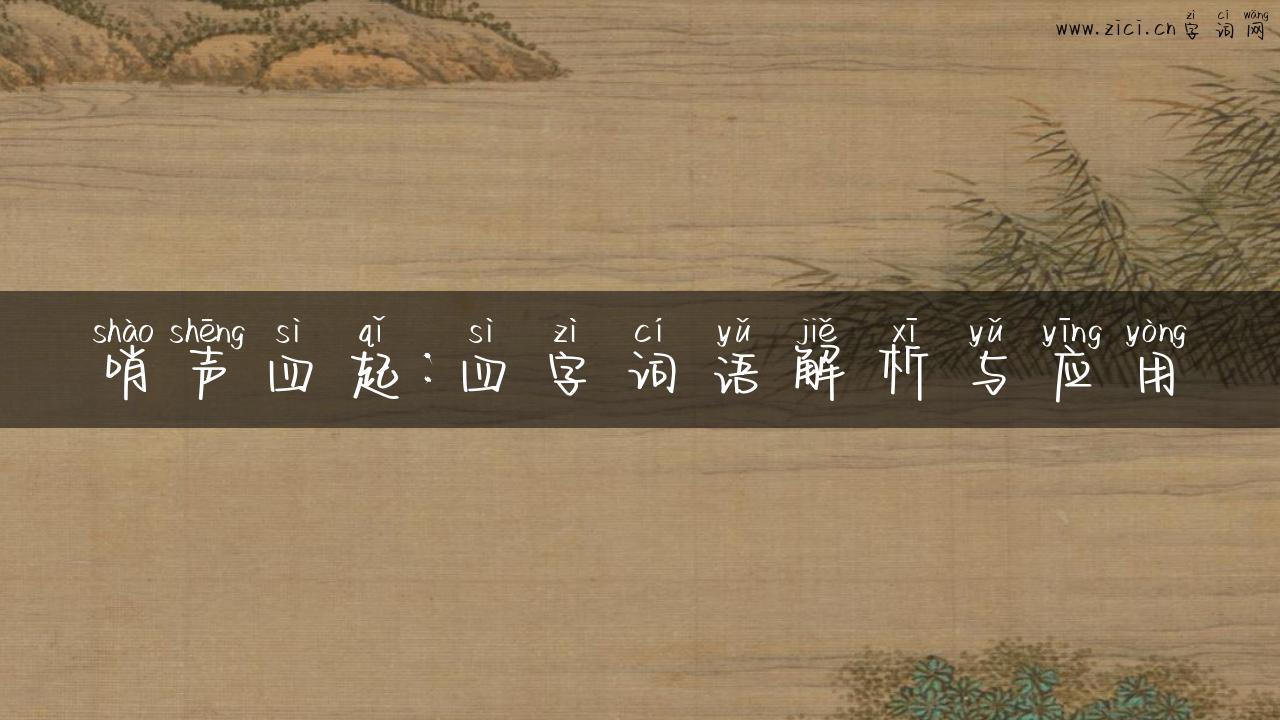 zì cí wǎng
www.zici.cn 字词网
shào shēng sì qǐ sì zì cí yǔ jiě xī yǔ yīng yòng
哨声四起:四字词语解析与应用